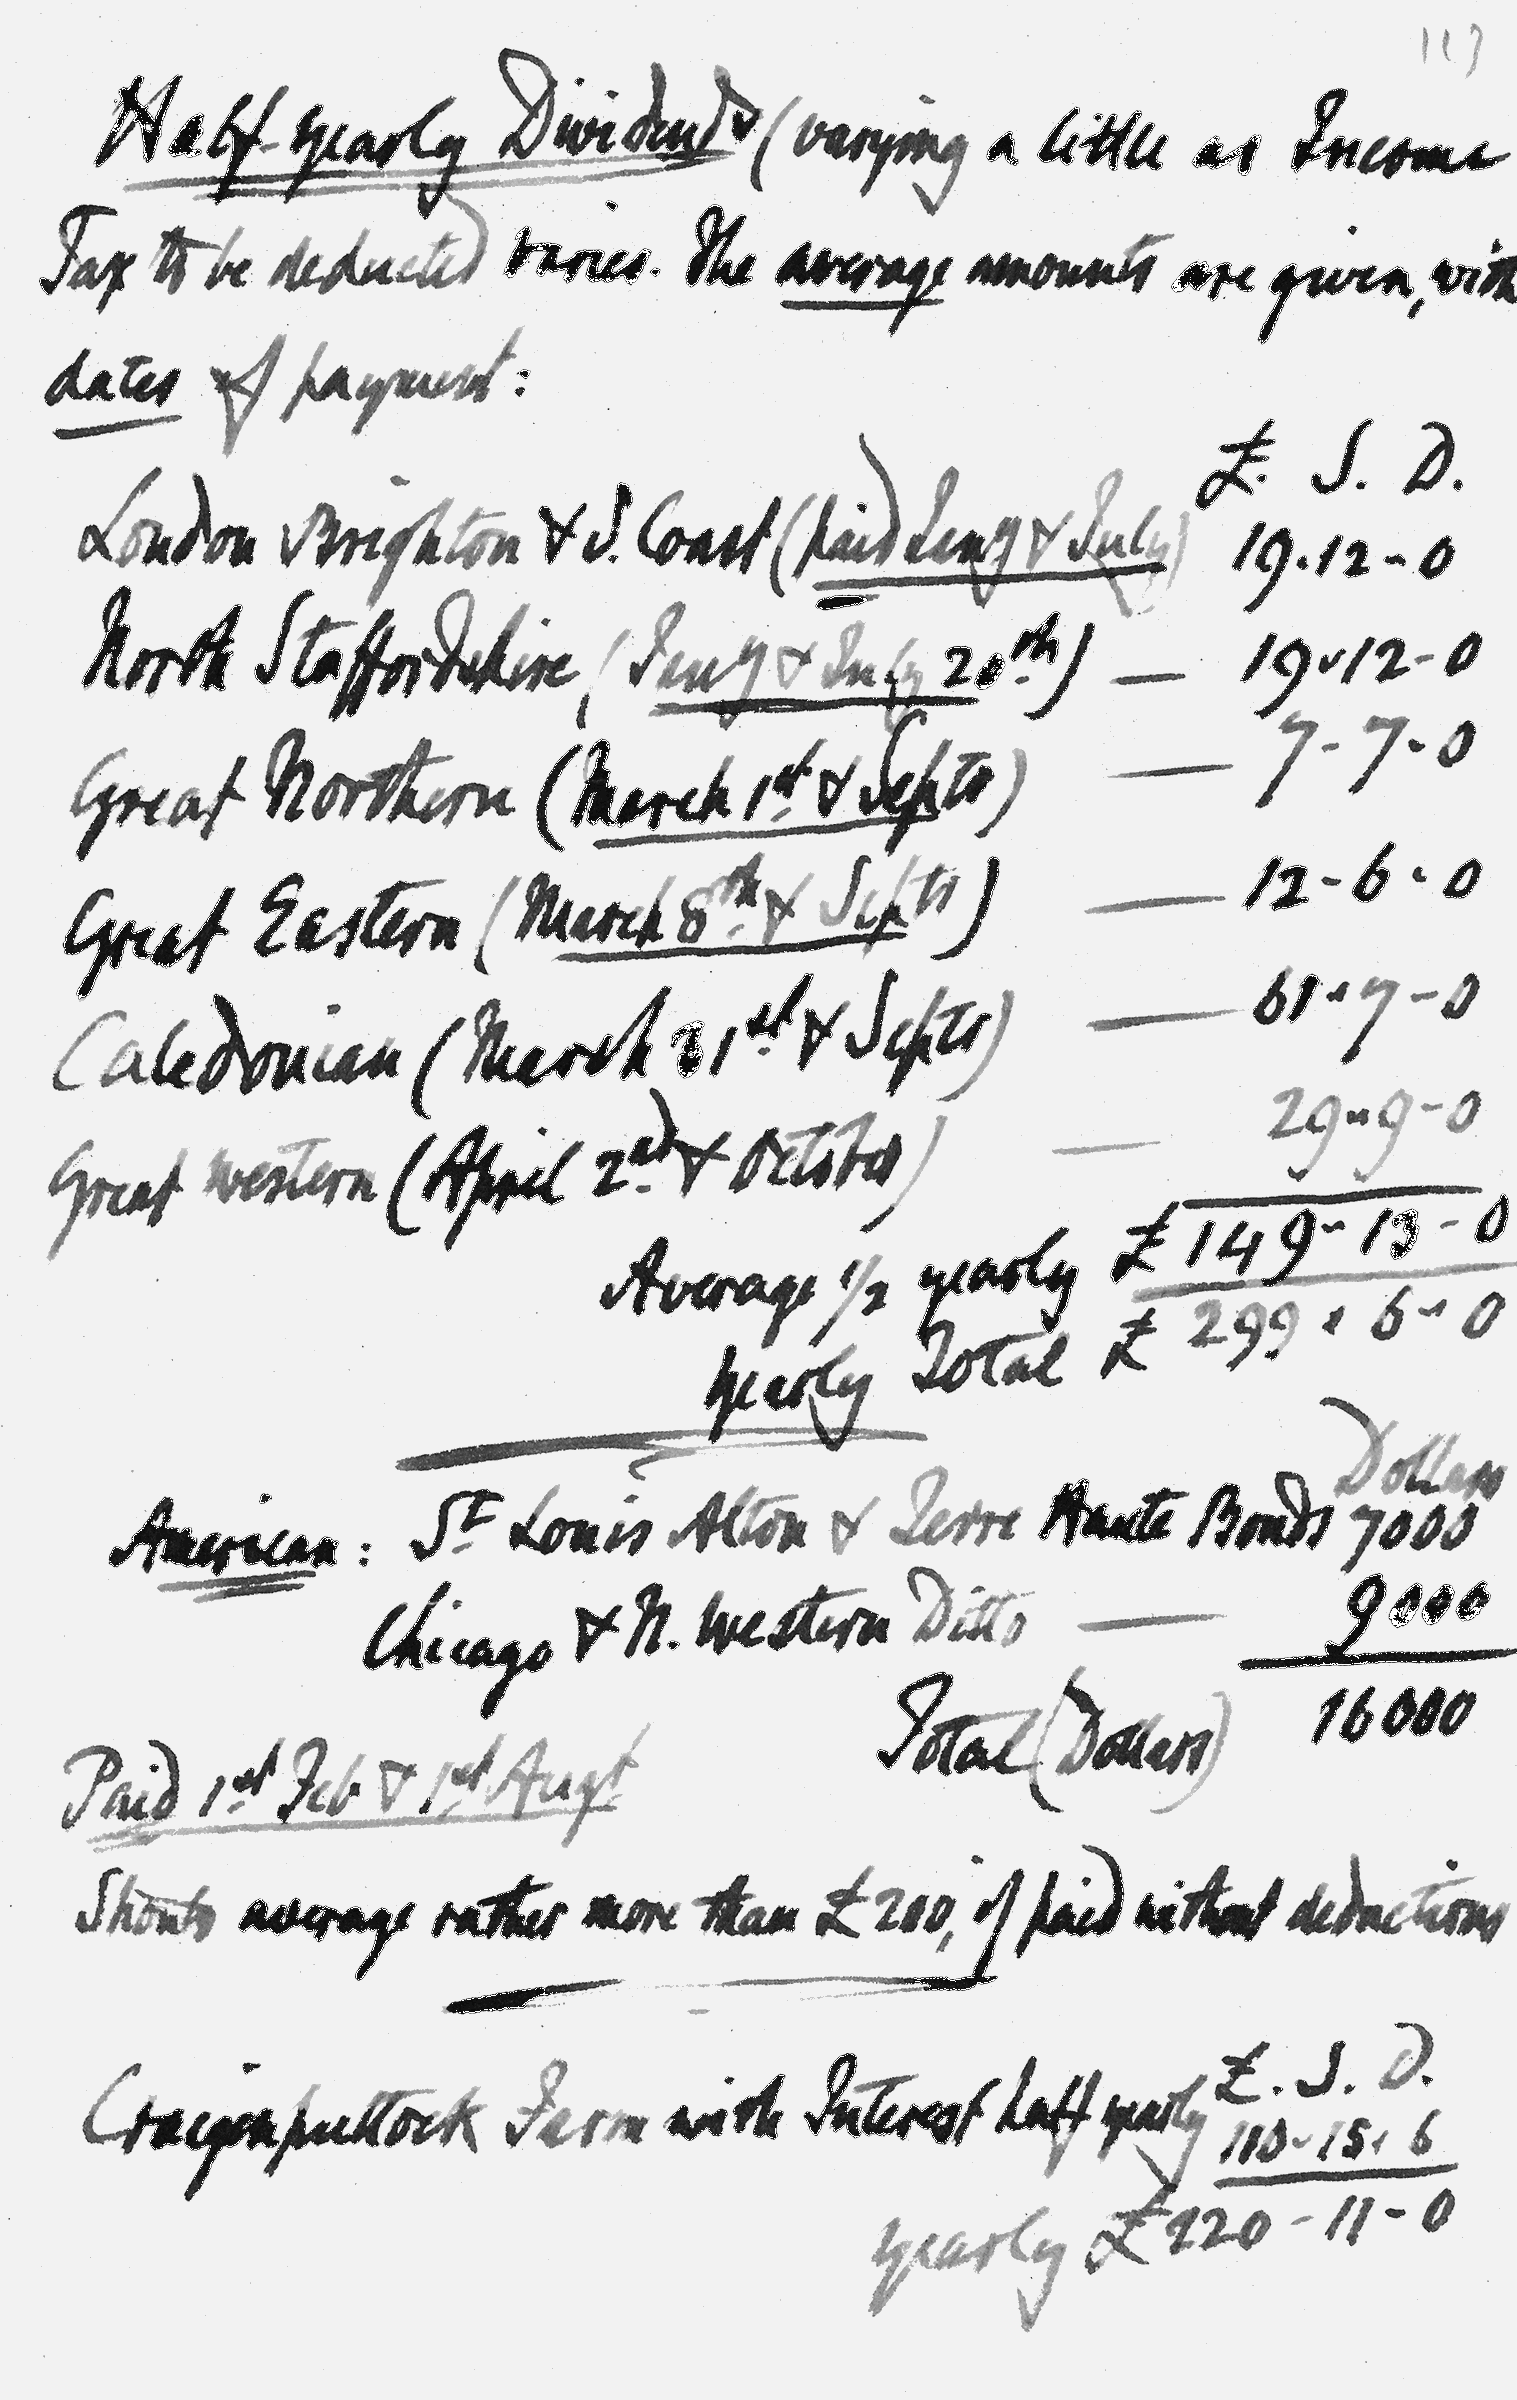 113
Half-yearly Dividends (varying a little as Income
Tax to be deducted varies. The average amounts are given, with
dates of payment:
£. S. D.
London Brighton & S. Coast (paid Jany & July) 19.12-0
North Staffordshire (Jany & July 20th) — 19-12-0
Great Northern (March 1st & Septr) — 7-7-0
Great Eastern (March 8th & Septr) — 12-6-0
Caledonian (March 31st & Septr) — 61-7-0
Great Western (April 2nd & October) — 29-9-0
Average 1/2 yearly £149-13-0
Yearly Total £299.6-0
Dollars
American: St Louis Alton & Terre Haute Bonds 7000
Chicago & N. Western Ditto — 9000
Total (Dollars) 16000
Paid 1st Feb & 1st Augt
Should average rather more than £200, if paid without deductions
£. S. D.
Craigenputtock Farm with Interest half yearly 110-15.6
yearly £220-11-0